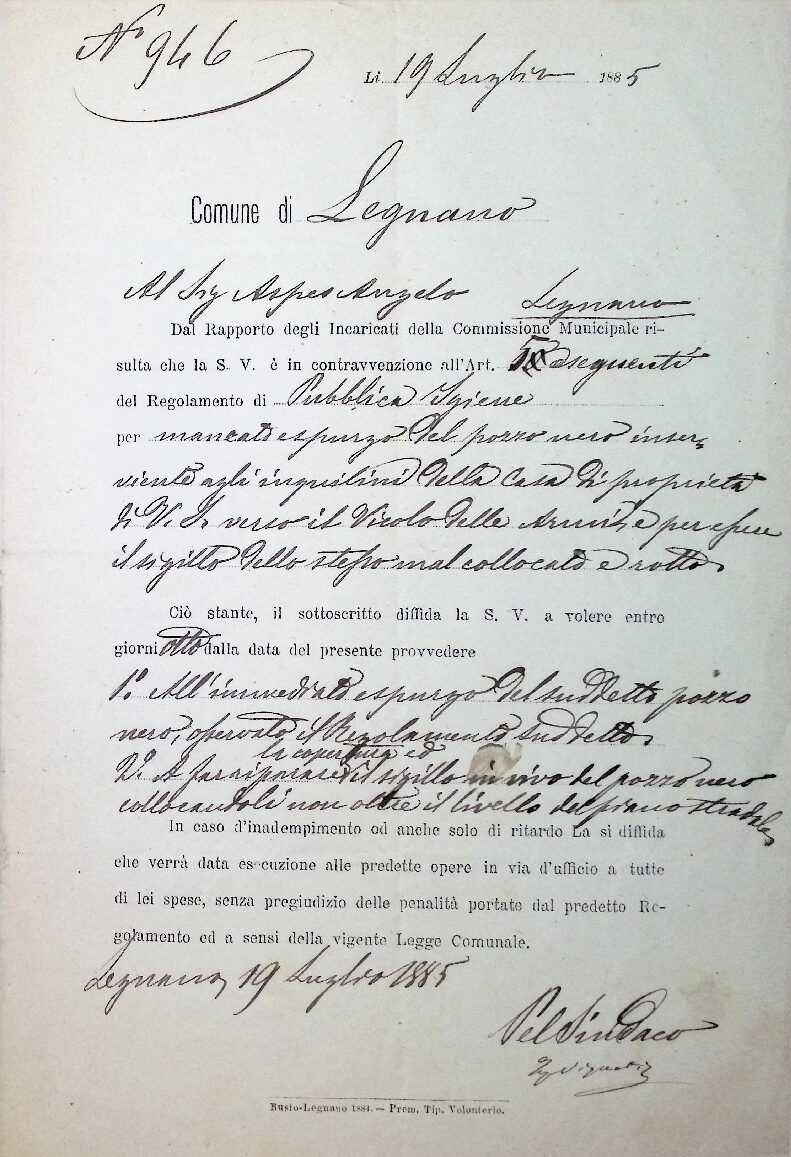 N° 946
Li 19 Luglio 1885
Comune di Legnano
Al Sig Aspes Angelo Legnano
Dal Rapporto degli Incaricati della Commissione Municipale ri-
sulta che la S. V. è in contravvenzione all'Art. e seguenti
del Regolamento di Pubblica Igiene
per mancato espurgo del pozzo nero inser-
viente agli inquilini della Casa di proprietà
di V. S. verso il Vicolo delle e per essere
il sigillo dello stesso mal collocato e rotto.
Ciò stante, il sottoscritto diffida la S. V. a volere entro
giorni otto dalla data del presente provvedere
1.° All'immediato espurgo del suddetto pozzo
nero, osservato il Regolamento suddetto.
la copertura ed
2.° A far riparare il sigillo in vivo del pozzo nero
collocandoli non oltre il livello del piano stradale
In caso d'inadempimento od anche solo di ritardo La si diffida
che verrà data esecuzione alle predette opere in via d'ufficio a tutte
di lei spese, senza pregiudizio delle penalità portate dal predetto Re-
golamento ed a sensi della vigente Legge Comunale.
Legnano, 19 Luglio 1885
Pel Sindaco
Busto-Legnano 1884. — Prem. Tip. Volonterio.